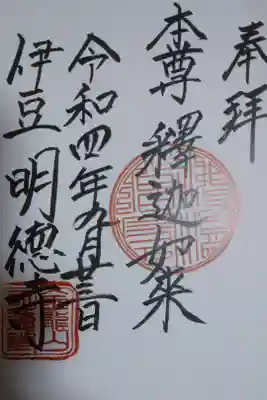 奉拝
本尊 釋迦如来
令和四年九月廿三日
伊豆 明徳寺